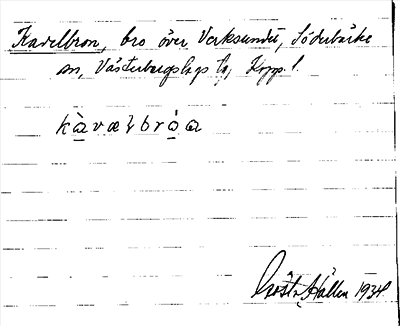 Kavelbron, bro över Verksundet, Söderbärke
sn, Västerbergslags ts, Kopp. l.
kàvæłbróa
Gösta Hallén 1934